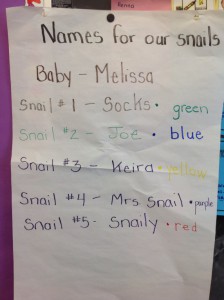 Names for our snails
Baby - Melissa
Snail #1 - Socks • green
Snail #2 - Joe • blue
Snail #3 - Keira • yellow
Snail #4 - Mrs Snail • purple
Snail #5 - Snaily • red